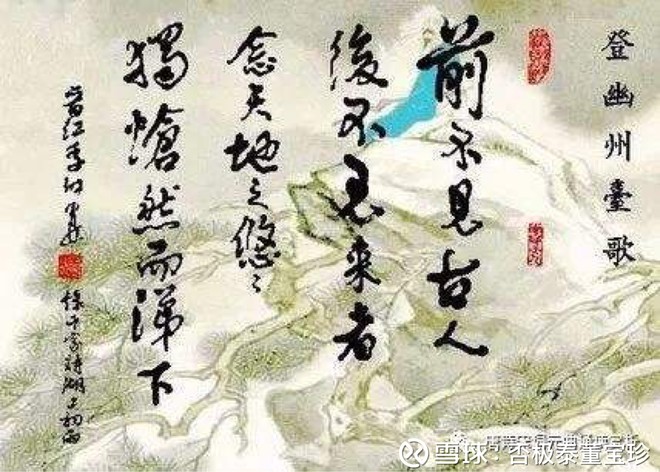 登幽州臺歌
前不見古人
後不見来者
念天地之悠〻
獨愴然而涕下
雪球：否极泰董宝珍